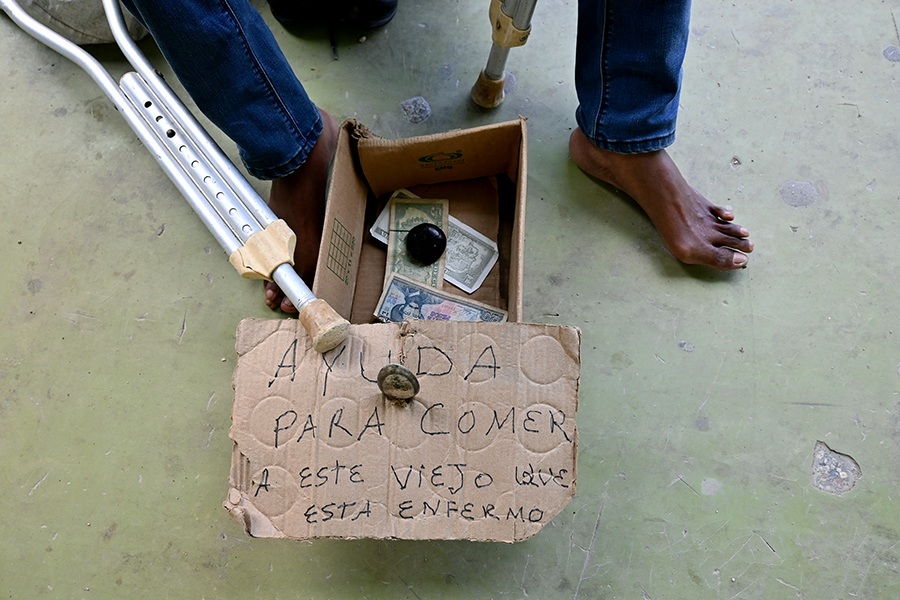 AYUDA
PARA COMER
A ESTE VIEJO QUE
ESTA ENFERMO